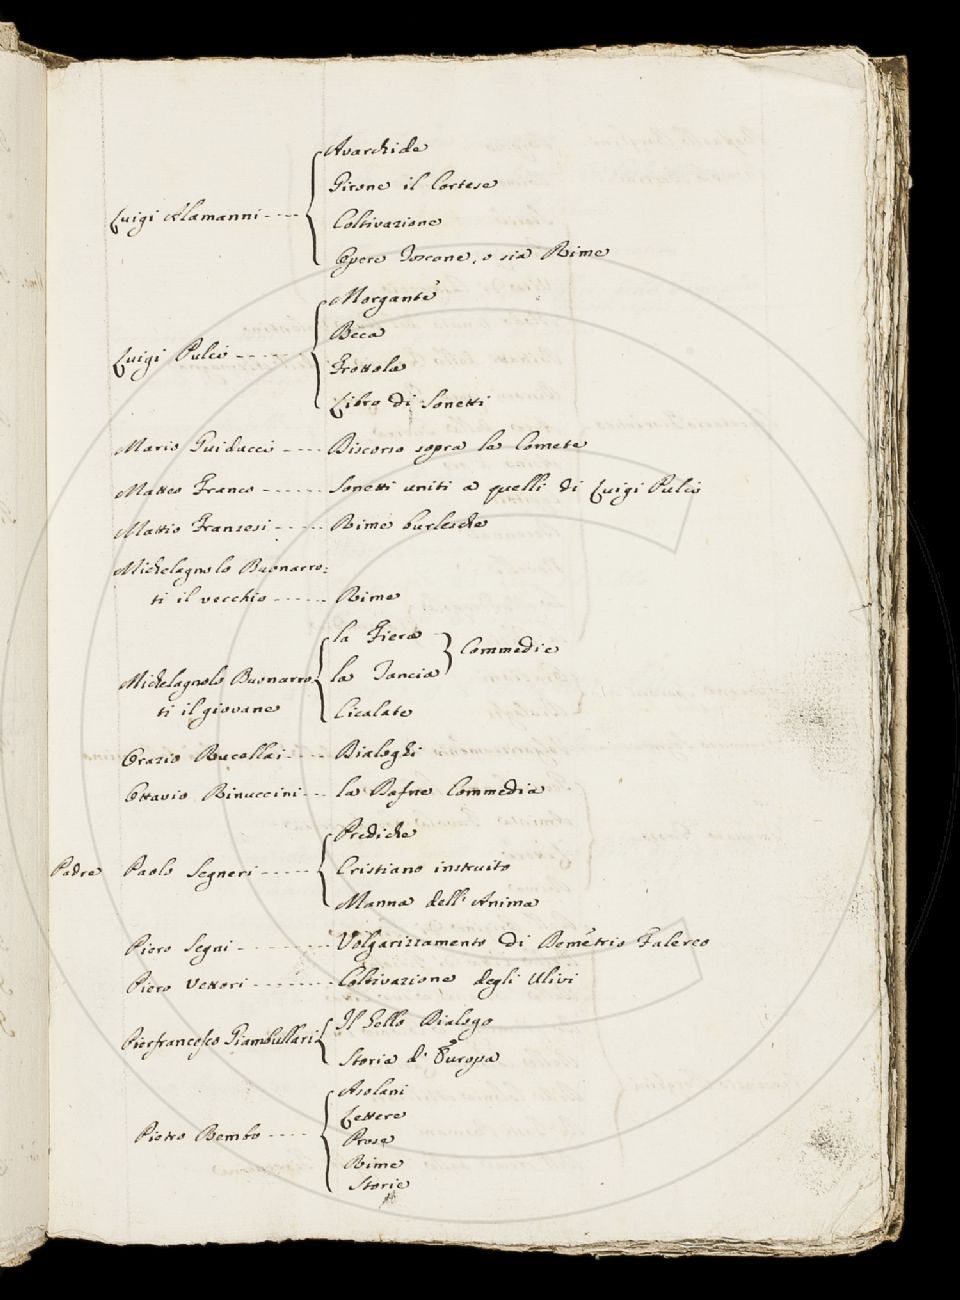 Avarchide
Girone il Cortese
Luigi Alamanni ----
Coltivazione
Opere Toscane, o sia Rime
Morgante
Beca
Luigi Pulci -----
Frottola
Libro di Sonetti
Mario Guiducci ---- Discorso sopra le Comete
Matteo Franco ------ Sonetti uniti a quelli di Luigi Pulci
Mattio Franzesi ----- Rime burlesche
Michelagnolo Buonarro:
ti il vecchio ------ Rime
la Fiera
Commedie
Michelagnolo Buonarro
la Tancia
ti il giovane
Cicalate
Orazio Rucellai ---- Dialoghi
Ottavio Rinuccini --- la Dafne Commedia
Prediche
Padre Paolo Segneri ----- Cristiano instruito
Manna dell'Anima
Piero Segni --------- Volgarizzamento di Demetrio Falereo
Piero Vettori -------- Coltivazione degli Ulivi
Pierfrancesco Giambullari Il Gello Dialogo
Storia d'Europa
Asolani
Lettere
Pietro Bembo ---- Prose
Rime
Storie